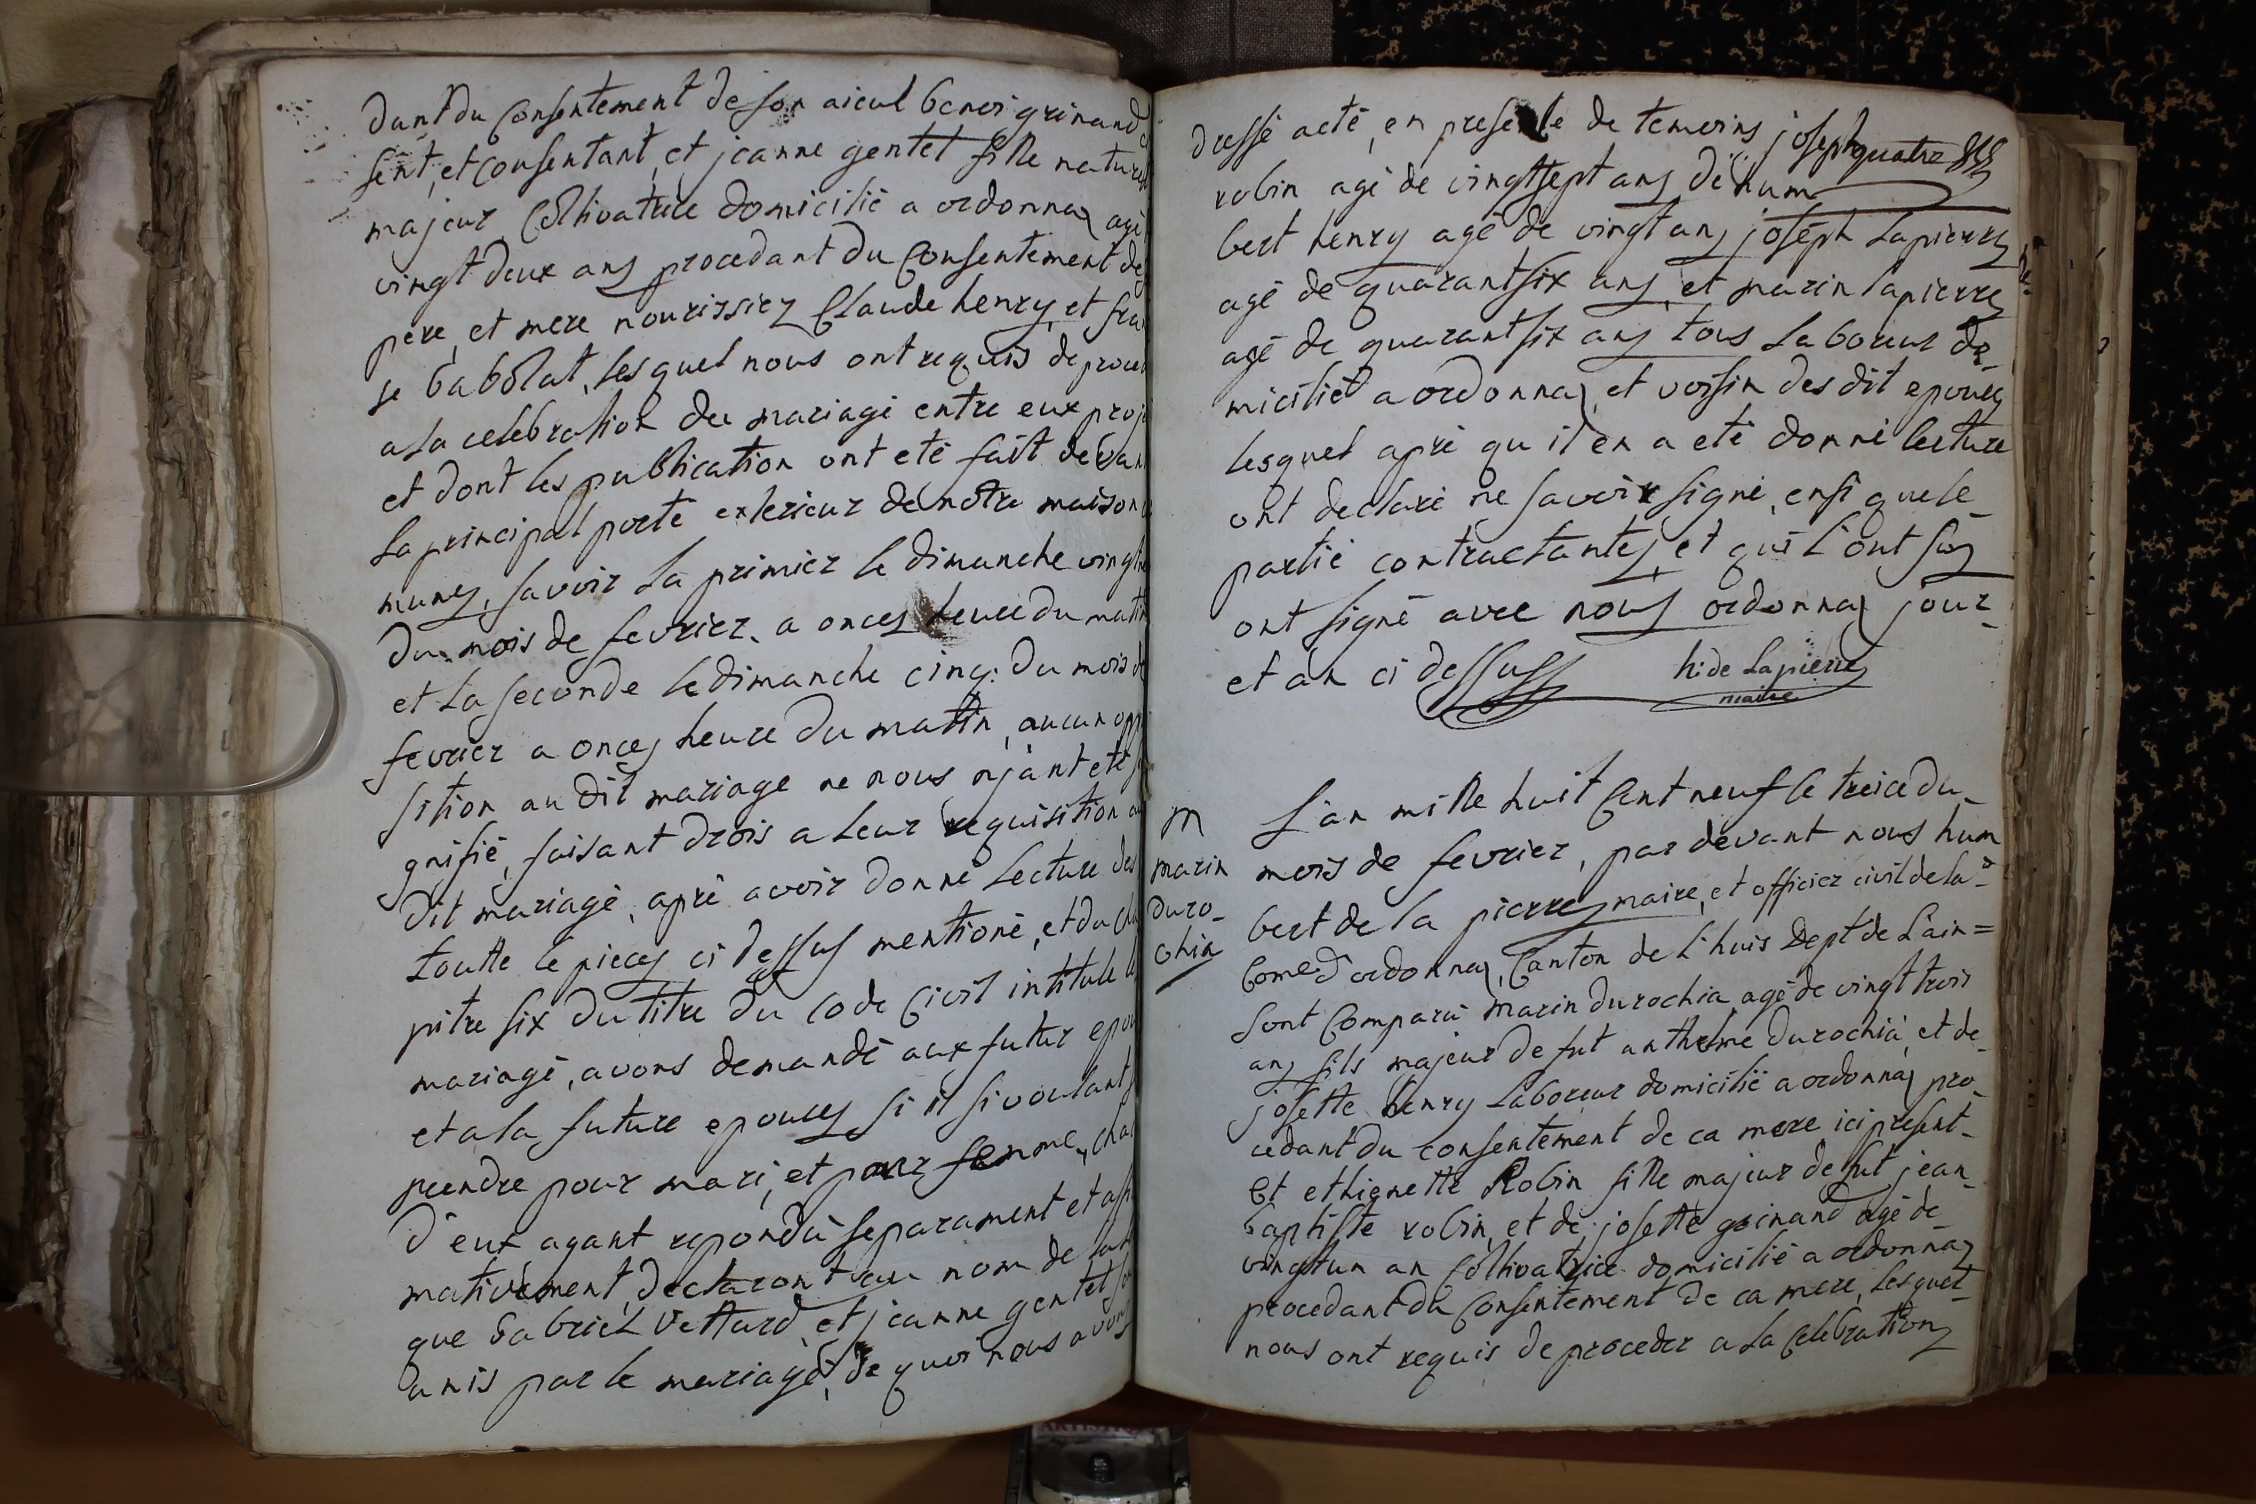 dant du consentement de son aieul benoi grinand
sent, et consentant, et jeanne gentet fille nature
majeur Coltivatrice domicilié a ordonnaz agé
vingt deux ans procedant du consentement de
pere, et mere nourissier Claude henry, et fra
se babolat, les quel nous ont requis de proce
a la celebration du mariagé entre eux proj
et dont les publication ont eté fait devan
la principal porte exterieur de notre maison
munes, savoir la primier le dimanche vingt
du mois de fevrier a onces heure du matin
et la seconde le dimanche cinq du mois de
fevrier a onces heure du matin, aucun opp
sition au dit mariage ne nous ajant eté si
gnifié, faisant drois a leur requisition
dit mariagé, apré avoir donné lecture des
toutte le pieces ci dessus mentioné, et du cha
pitre six du titre du code Civil intitule
mariagé, avons demandé aux futur epou
et a la future epouces si il si voulant
prendre pour mari, et pour femme, chac
d'eux agant repondu separament et affi
mativement, declaront au nom de la
que Gabriel Vettard, et jeanne gentet
unis par le mariagé, de quoi nous avons
dressé acté, en presence de temoins joseph quatre
robin agé de vingtsept ans de hum
bert henry agé de vingt ans joseph Lapierre
agé de quarantsix ans, et marin lapierre
agé de quarantsix ans tous Laboreur do-
micilié a ordonnaz, et voisin des dit epoues
lesquel apré qu il en a eté donné lecture
ont declaré ne savoir signé, ensi que le-
partié contractantes, et qui l'ont su
ont signé avec nous ordonnaz jour-
et an ci dessus
h. de Lapierre
maire
m
marin
duro-
chia
L'an mille huit Cent neuf le treice du-
mois de fevrier, par devant nous hum
bert de la pierre maire, et officier civil de la-
Come d'ordonnaz, Canton de L'huis Dept de L'ain=
Sont Comparu marin durochia agé de vingt trois
ans fils majeur de fut anthelme durochia, et de-
josette henry Laboreur domicilié a ordonnaz pro-
cedant du consentement de ca mere ici present-
Et ethignette Robin fille majeur de fut jean-
baptiste robin, et de josette grinand agé de-
vingtun an Coltivatrice domicilié a ordonnaz
procedant du Consentement de ca mere, Les quel-
nous ont requis de proceder a la Celebration